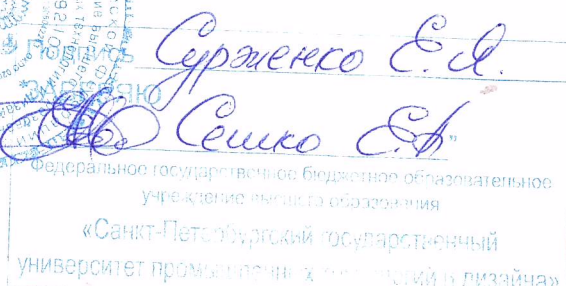 Подпись Сурженко Е.Я.
ЗАВЕРЯЮ
Сешко Е.А.
Федеральное государственное бюджетное образовательное
учреждение высшего образования
«Санкт-Петербургский государственный
университет промышленных технологий и дизайна»